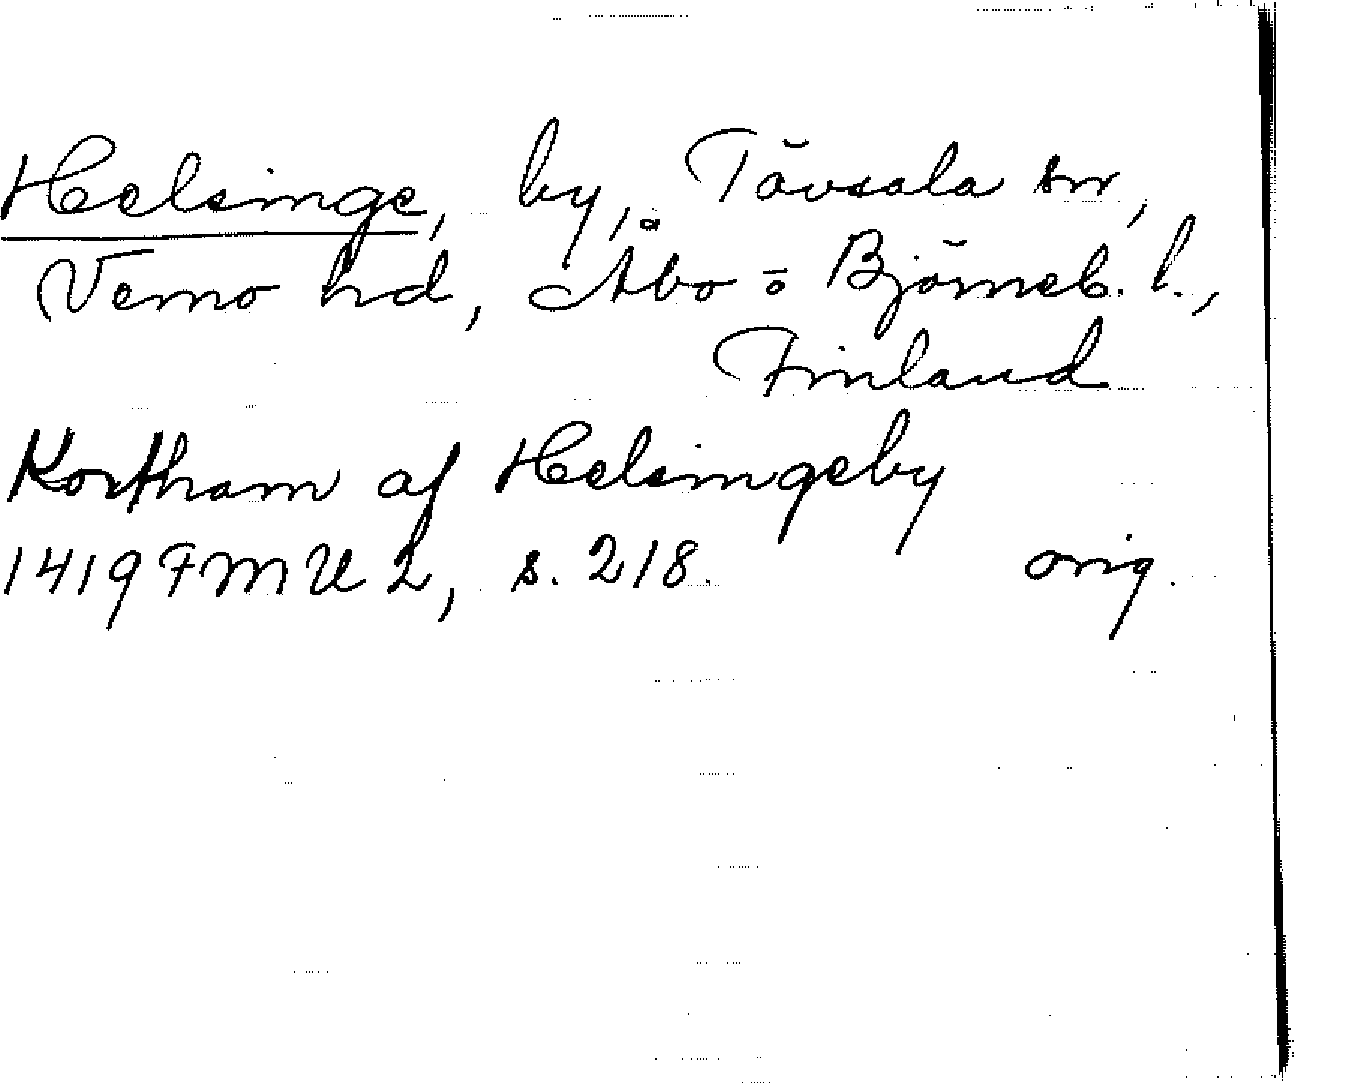 Helsinge, by, Tövsala sn,
Vemo hd, Åbo o Björneb. l.,
Finland
Kortham af Helsingeby
1419 FMU 2, s. 218. orig.